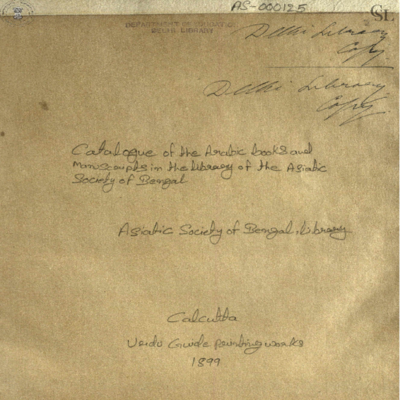 AS-000125
GSL
DEPARTMENT OF
DELHI LIBRARY
Delhi Library
Copy
Delhi Library
Copy
Catalogue of the Arabic books and
Manuscripts in the library of the Asiatic
Society of Bengal
Asiatic Society of Bengal, library
Calcutta
Urdu Guide Printing works
1899